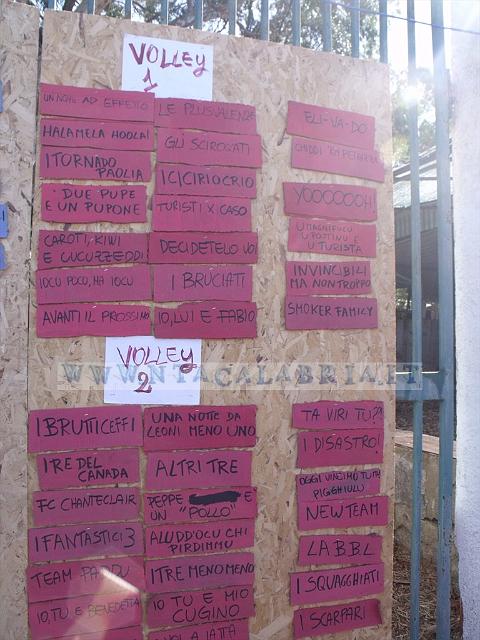 VOLLEY
1
UN NOME AD EFFETTO
HALAMELA HOOLA!
I TORNADO
PAOLIA
DUE PUPE
E UN PUPONE
CAROTI, KIWI
E CUCUZZEDDI
IOCU POCU, HA IOCU
AVANTI IL PROSSIMO
LE PLUSVALENZE
GLI SCIROCATI
ICICIRIOCRIO
TURISTI X CASO
DECIDETELO VOI
I BRUCIATI
IO, LUI E FABIO
ELI-VA-DO
CHIDDI
YOOOOOOH!
U MAGNIFUCU
U POSTINU E
U TURISTA
INVINCIBILI
MA NON TROPPO
SMOKER FAMILY
WWW.NTACALABRIA.IT
VOLLEY
2
I BRUTTICEFFI
I RE DEL
CANADA
FC CHANTECLAIR
I FANTASTICI 3
TEAM PADDU
IO, TU E BENEDETTA
UNA NOTTE DA
LEONI MENO UNO
ALTRI TRE
PEPPE E
UN "POLLO"
ALU DD'OCU CHI
PIRDIMMU
I TRE MENO MENO
IO TU E MIO
CUGINO
TA VIRI TU??
I DISASTRO!
OGGI VINCIMU TUTTU
PIGGHIULU
NEW TEAM
LA B.B.L
I SQUAGGHIATI
I SCARPARI